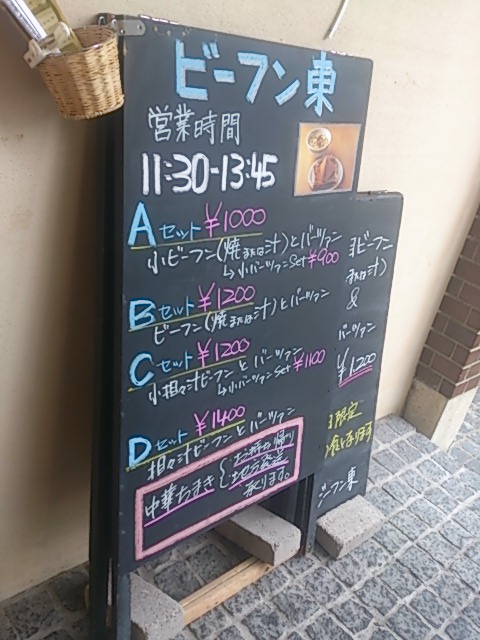 ビーフン東
営業時間
11:30-13:45
Aセット ¥1000
小ビーフン(焼または汁)とバーツァン
↳小バーツァンSet ¥900
Bセット ¥1200
ビーフン(焼または汁)とバーツァン
Cセット ¥1200
小担々汁ビーフンとバーツァン
↳小バーツァンSet ¥1100
Dセット ¥1400
担々汁ビーフンとバーツァン
中華ちまき { お持ち帰り
地方発送
承ります。
ビーフン
または汁)
&
バーツァン
¥1,200
限定
ーフン東